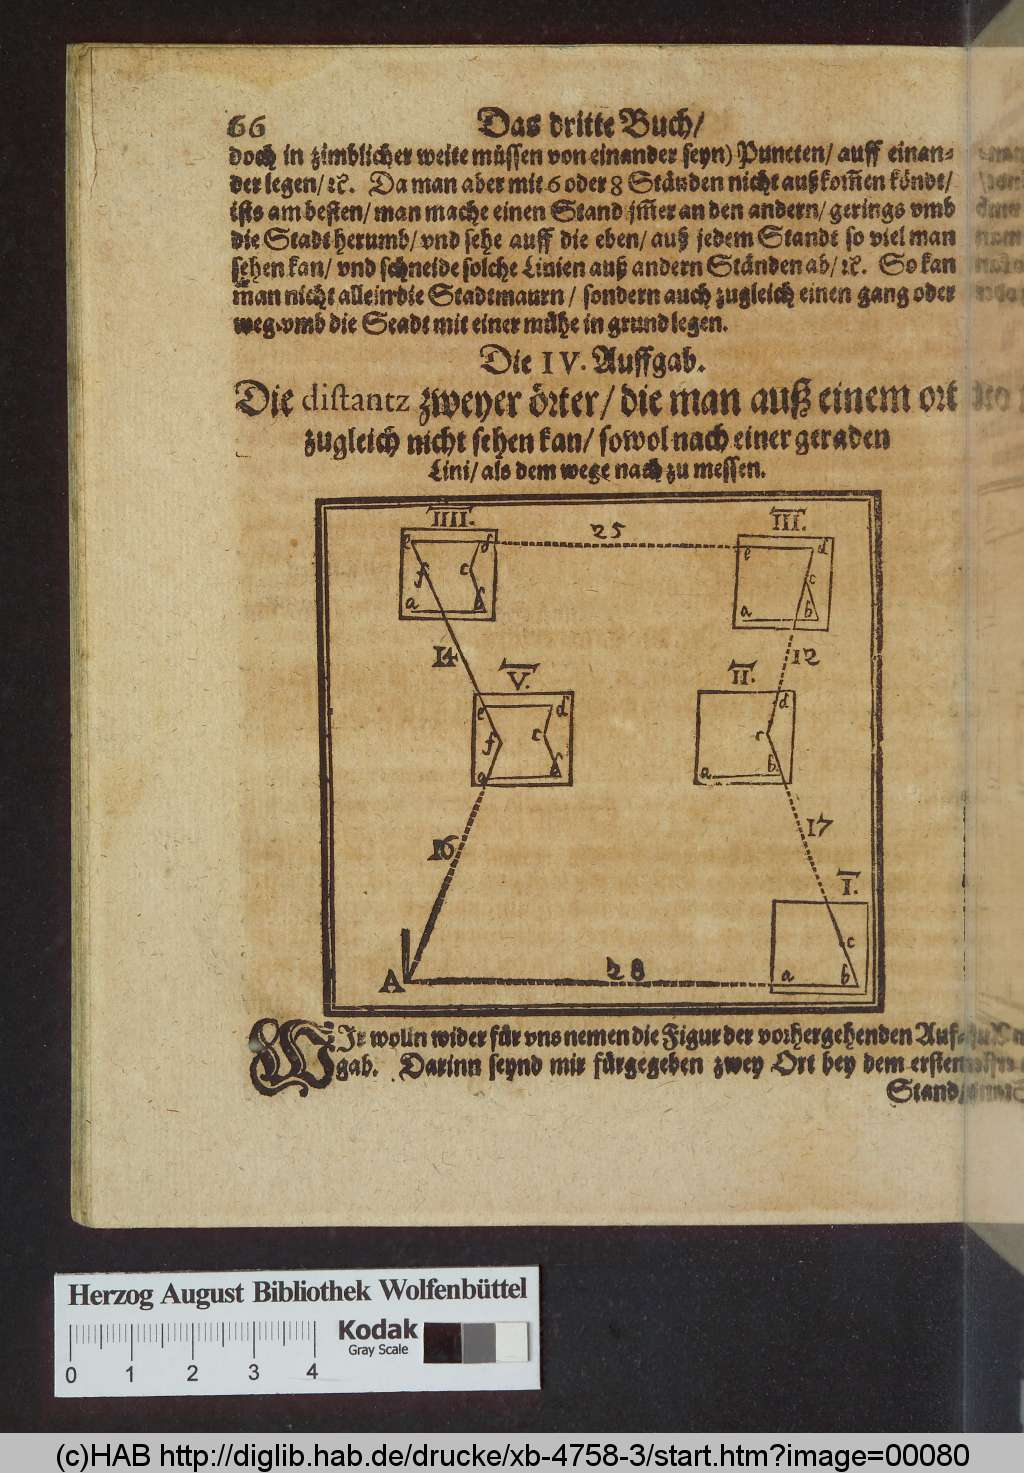 66 Das dritte Buch/
doch in zimblicher weite müssen von einander seyn) Puncten/ auff einan-
der legen/ ꝛc. Da man aber mit 6 oder 8 Ständen nicht außkom̃en köndt/
ists am besten/ man mache einen Stand jm̃er an den andern/ gerings vmb
die Stadt herumb/ vnd sehe auff die eben/ auß jedem Standt so viel man
sehen kan/ vnd schneide solche Linien auß andern Ständen ab/ ꝛc. So kan
man nicht allein die Stadtmaurn/ sondern auch zugleich einen gang oder
weg vmb die Stadt mit einer mühe in grund legen.
Die IV. Auffgab.
Die distantz zweyer örter/ die man auß einem ort
zugleich nicht sehen kan/ sowol nach einer geraden
Lini/ als dem wege nach zu messen.
IIII. III.
e f 25 e d
f c c
a b a b
14 12
V. II.
e d d
f c c
a b a b
16 17
I.
c
A 28 a b
WIr wolln wider für vns nemen die Figur der vorhergehenden Auf-
gab. Darinn seynd mir fürgegeben zwey Ort bey dem ersten
Stand/
Herzog August Bibliothek Wolfenbüttel
Kodak
Gray Scale
0 1 2 3 4
(c)HAB http://diglib.hab.de/drucke/xb-4758-3/start.htm?image=00080